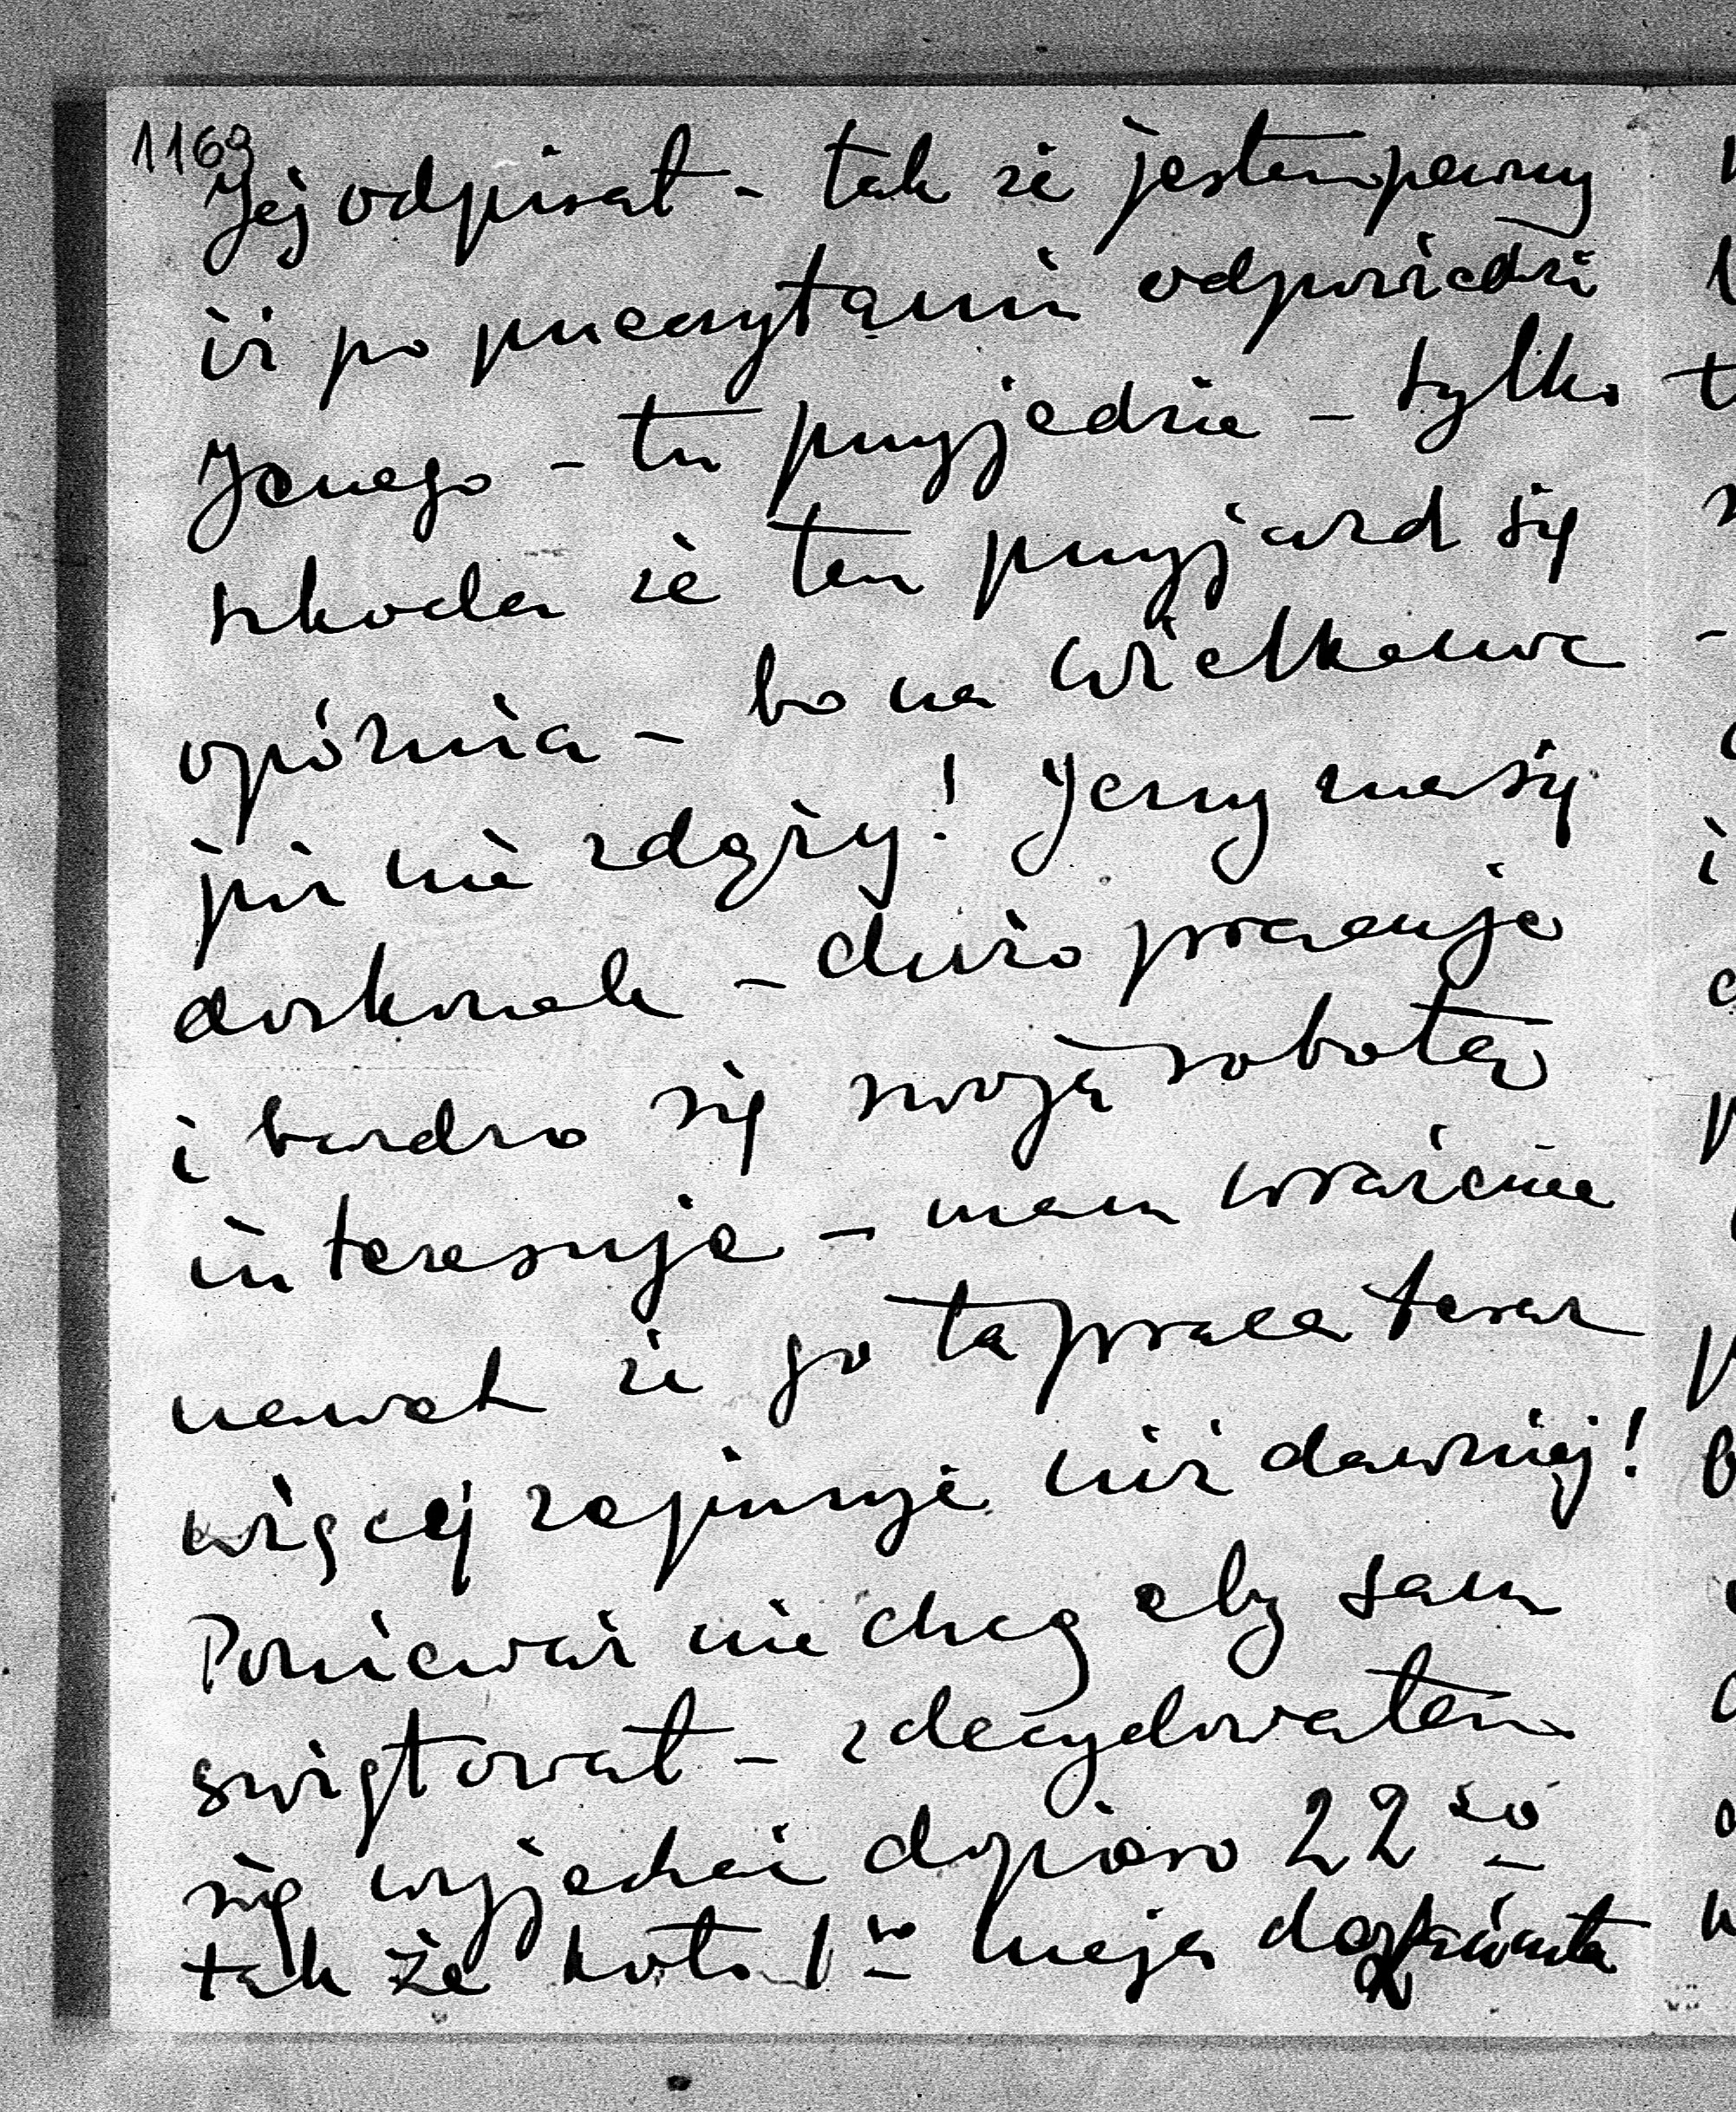 1169
Jej odpisał - tak że jestem pewny
iż po przeczytaniu odpowiedzi
Jerzego - tu przyjedzie - tylko
szkoda że ten przyjazd się
opóźnia - bo na Wielkanoc
już nie zdąży! Jerzy ma się
doskonale - dużo pracuje
i bardzo się swoją robotą
interesuje - mam wrażenie
nawet że go ta praca teraz
więcej zajmuje niż dawniej!
Ponieważ nie chcę aby sam
świętował - zdecydowałem
się wyjechać dopiero 22go
tak że koło 1go maja